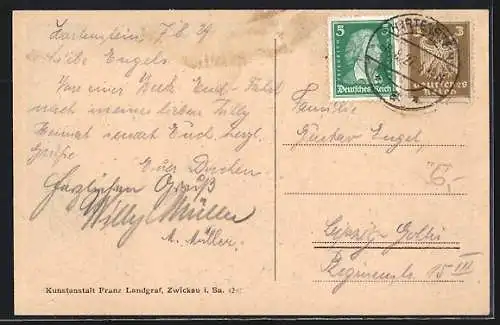 Hartenstein, 7.6.29
Liebe Engels
Von einer Week-End-Fahrt
nach meiner lieben Filly
Heimat sendet Euch herzl.
Grüße
Euer
Herzlichen Gruß
Willy Müller
M. Müller.
Kunstanstalt Franz Landgraf, Zwickau i. Sa.
5 5
Deutsches Reich
3
Deutsches
Reich
HARTENSTEIN
Familie
Gustav Engel,
6,-
Leipzig-Gohlis
15 III